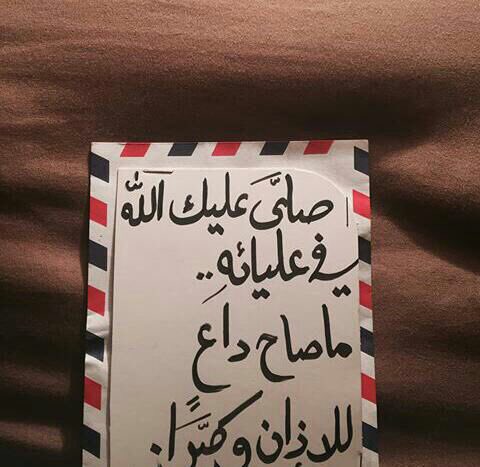 صلىَّ عليك الله
في عليائهِ..
ما صاح داعِ
للاذان وكبَّرا.